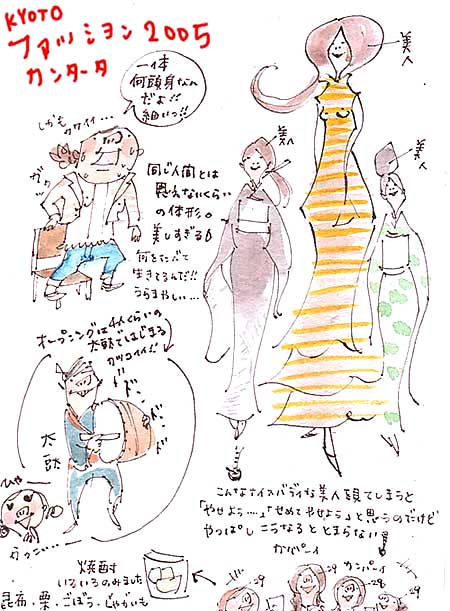 KYOTO
ファッション2005
カンタータ
一体
何頭身なん
だよ!!
細いっ!!
しかも
カワイイ…
ガタッ
美人
美人
美人
同じ人間とは
思えないくらい
の体形。
美しすぎる
何をたべて
生きてるんだ!!
うらやましい…
オープニングは4人くらいの
太鼓ではじまる
カッコイイだ
ドドンドン
太鼓
ひゃー
かっこ…
こんなナイスバディな美人を見てしまうと
「やせよう…」「せめてやせよう」と思うのだけど
やっぱしこうなるととまらない
カンパーイ
カンパーイ
焼酎
いろいろのみました
昆布、栗、ごぼう、じゃがいも